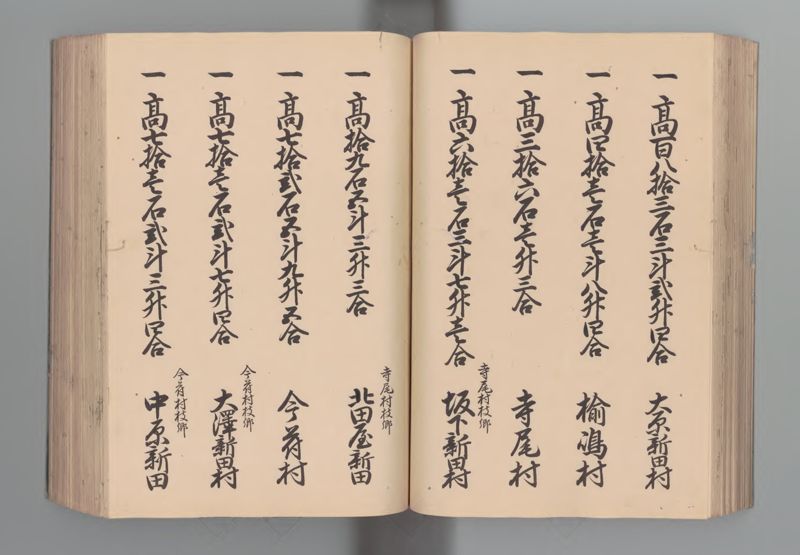 一 高百八拾三石三斗弐升四合 大原新田村
一 高四拾壱石壱斗八升四合 楡嶋村
一 高三拾六石壱升三合 寺尾村
寺尾村枝郷
一 高六拾壱石三斗七升壱合 坂下新田村
寺尾村枝郷
一 高拾九石五斗三升三合 北田屋新田
一 高七拾弐石五斗九升五合 今荷村
今荷村枝郷
一 高七拾壱石弐斗七升四合 大澤新田村
今荷村枝郷
一 高七拾壱石弐斗三升四合 中原新田